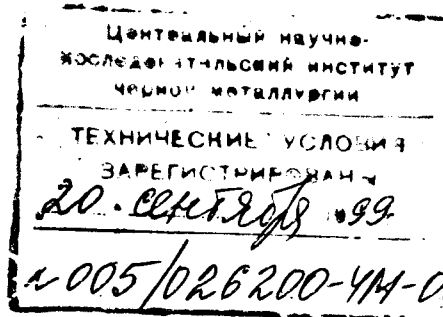 Центральный научно-
исследовательский институт
черной металлургии
ТЕХНИЧЕСКИЕ УСЛОВИЯ
ЗАРЕГИСТРИРОВАНЫ
20. сентября 1999
005/026200-ЧМ-0